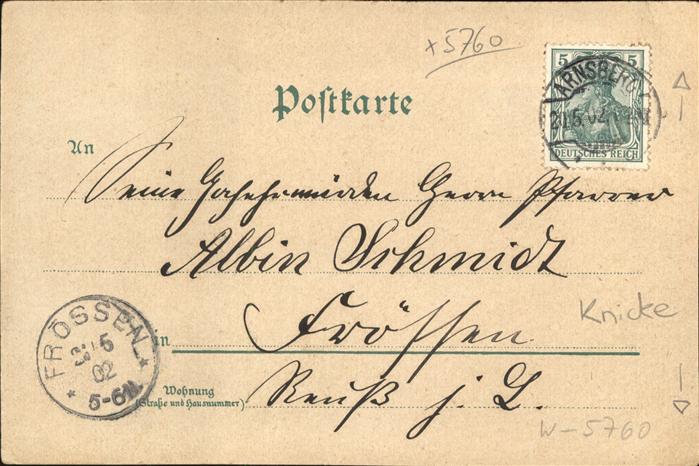 x5760
5 5
ARNSBERG
20.5.02.
DEUTSCHES REICH
Postkarte
An
Seine Hochehrwürden Herrn Pfarrer
Albin Schmidt
in Frössen
Wohnung
(Straße und Hausnummer)
Reuß j. L.
FRÖSSEN
5
02
5-6N.
Knicke
W-5760